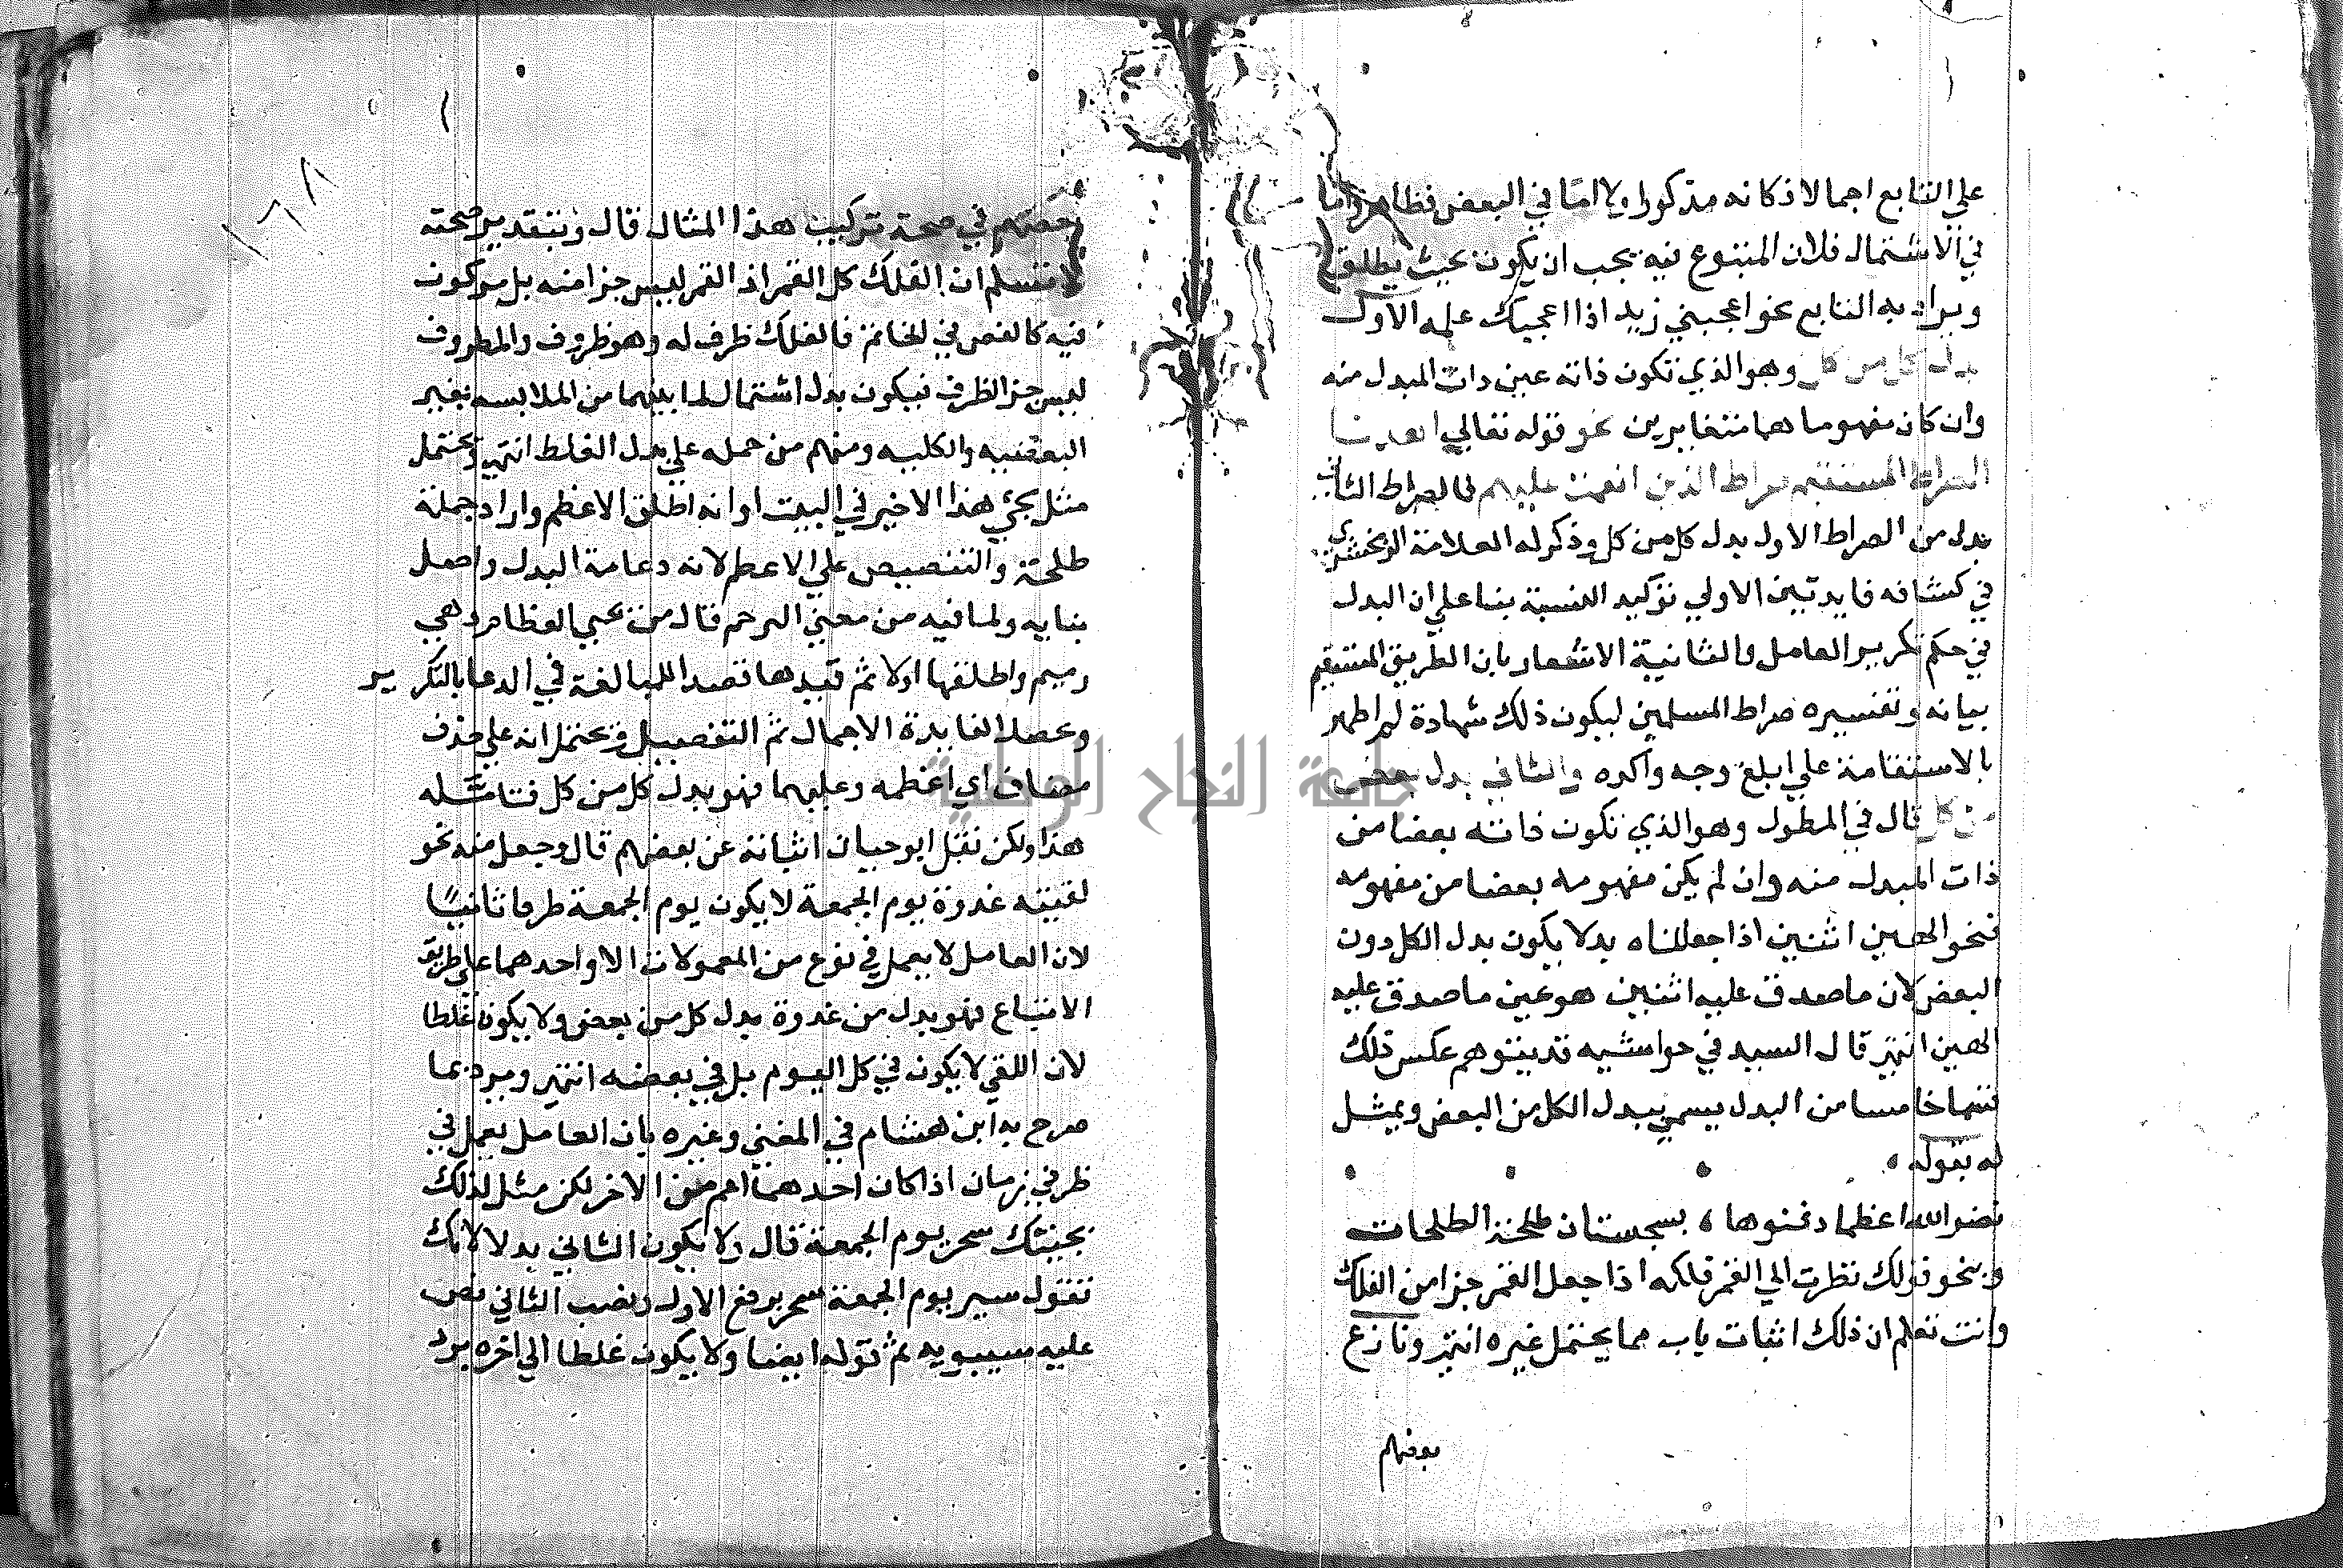 علي التابع اجمالا فكانه مذكور اولا اما في البعض فظاهر واما
في الاشتمال فلان المتبوع فيه يجب ان يكون بحيث يطلق
ويراد به التابع نحو اعجبني زيد اذا اعجبك علمه الاول
بدل كل من كل وهو الذي تكون ذاته عين ذات المبدل منه
وان كان مفهوماهما متغايرين نحو قوله تعالي اهدنا
الصراط المستقيم صراط الذين انعمت عليهم فالصراط الثاني
بدل من الصراط الاول بدل كل من كل وذكر له العلامة الزمخشري
في كشافه فايدتين الاولي توكيد النسبة بنا علي ان البدل
في حكم تكرير العامل والثانية الاشعار بان الطريق المستقيم
بيانه وتفسيره صراط المسلمين ليكون ذلك شهادة لصراطهم
بالاستقامة علي ابلغ وجه واكده والثاني بدل بعض
من كل قال في المطول وهو الذي تكون ذاته بعضا من
ذات المبدل منه وان لم يكن مفهومه بعضا من مفهومه
فنحو الهين اثنين اذا جعلناه بدلا يكون بدل الكل دون
البعض لان ما صدق عليه اثنين هو عين ما صدق عليه
الهين انتهي قال السيد في حواشيه قد يتوهم عكس ذلك
قسما خامسا من البدل يسمي ببدل الكل من البعض ويمثل
له بقوله
نضر الله اعظما دفنوها بسجستان طلحة الطلحات
وبنحو قولك نظرت الي القمر فلكه اذا جعل القمر جزا من الفلك
وانت تعلم ان ذلك اثبات باب مما يحتمل غيره انتهي ونازع
بعضهم
١٦٨
بعضهم في صحة تركيب هذا المثال قال وبتقدير صحته
لا نسلم ان الفلك كل القمر اذ القمر ليس جزا منه بل مركون
فيه كالفص في الخاتم فالفلك ظرف له وهو مظروف والمظروف
ليس جز الظرف فيكون بدل اشتمال لما بينهما من الملابسه بغير
البعضيه والكليه ومنهم من حمله علي بدل الغلط انتهي ويحتمل
مثل يجي هذا الاخير في البيت او انه اطلق الاعظم واراد جملة
طلحة والتنصيص علي الاعظم لانه دعامة البدن واصل
بنايه ولما فيه من معني الترحم قال من يحيي العظام وهي
رميم واطلقها اولا ثم قيدها قصدا للمبالغة في الدعا بالتكرير
وتحصيلا لفايدة الاجمال ثم التفصيل ويحتمل انه علي حذف
مضاف اي اعظمه وعليهما فهو بدل كل من كل فتامله
هذا ولكن نقل ابو حيان اثباته عن بعضهم قال وجعل منه نحو
لقيته غدوة يوم الجمعة لا يكون يوم الجمعة ظرفا ثانيا
لان العامل لا يعمل في نوع من المعمولات الا واحدهما علي طريق
الاتباع فهو بدل من غدوة بدل كل من بعض ولا يكون غلطا
لان اللقي لا يكون في كل اليوم بل في بعضه انتهي ويرد بما
صرح به ابن هشام في المغني وغيره بان العامل يعمل في
ظرفي زمان اذا كان احدهما اعم من الاخر لكن مثل لذلك
بجيتك سحر يوم الجمعة قال ولا يكون الثاني بدلا لانك
تقول سير يوم الجمعة سحر برفع الاول ونصب الثاني نص
عليه سيبويه ثم قوله ايضا ولا يكون غلطا الي اخره يرد
جامعة النجاح الوطنية